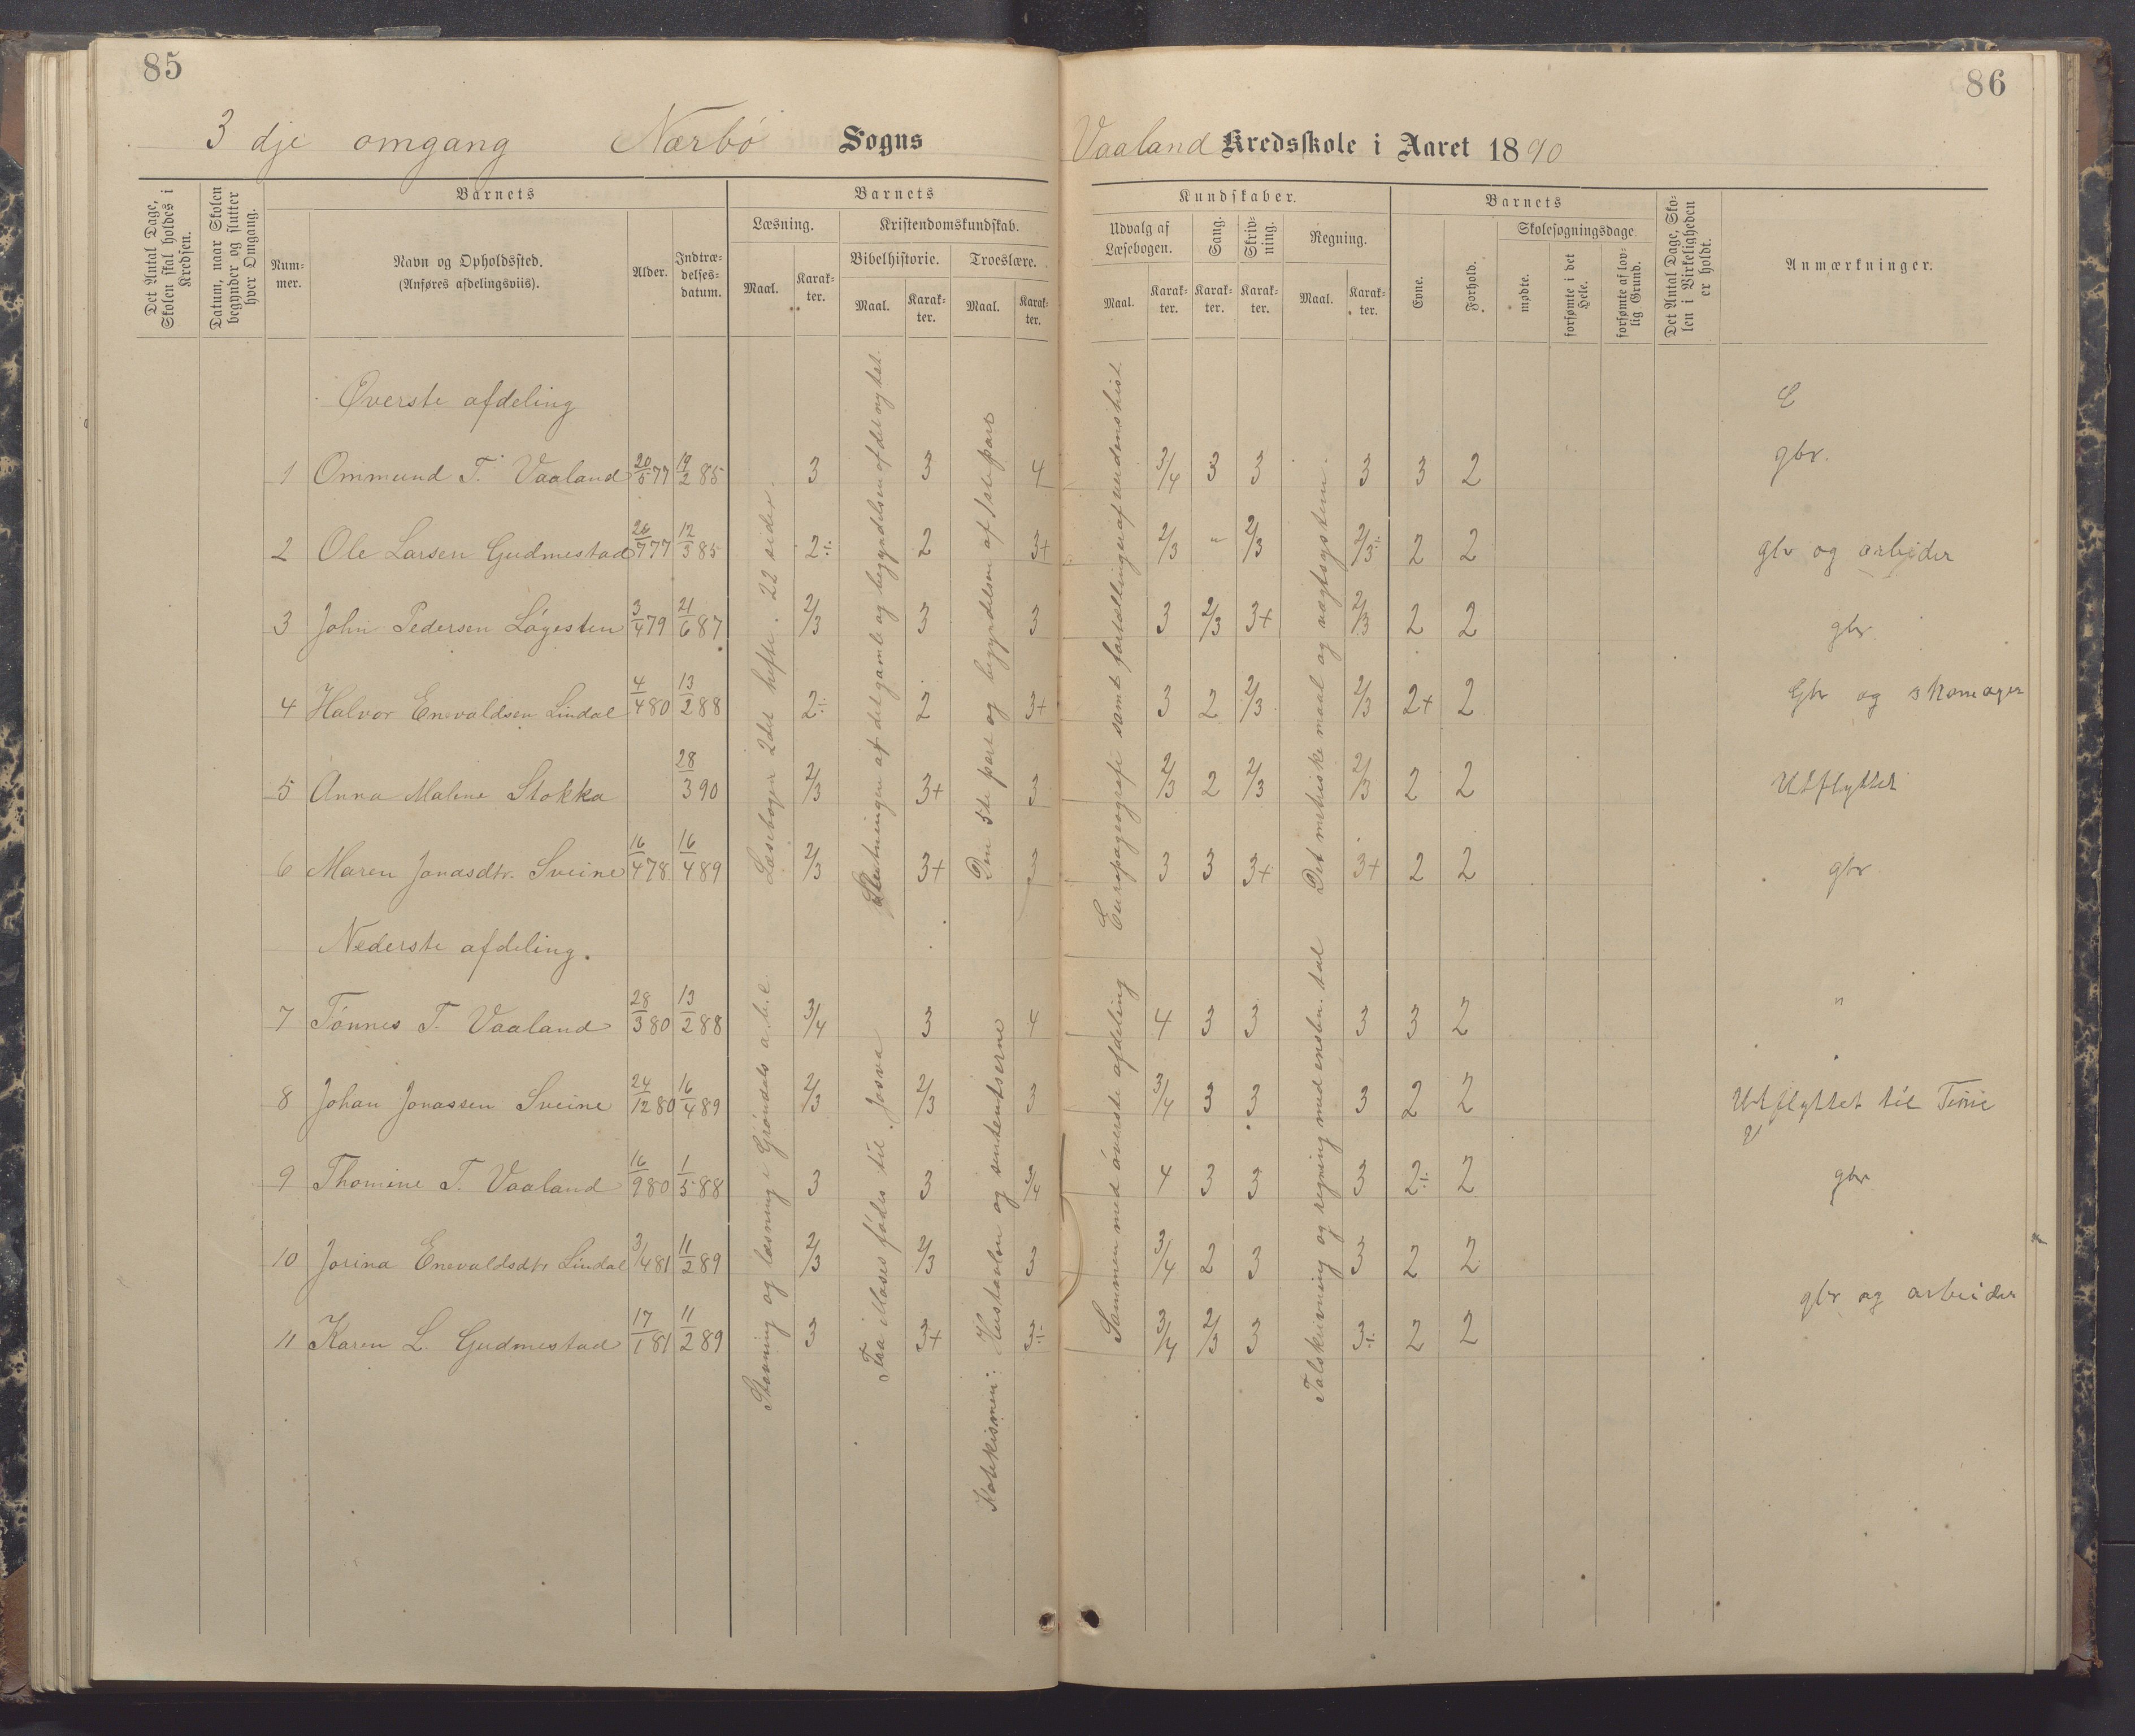 85
86
3 dje omgang Nærbø Sogns
Vaaland Kredsskole i Aaret 1890
Det Antal Dage, Skolen skal holdes i Kredsen.
Datum, naar Skolen begynder og slutter hver Omgang.
Barnets
Nummer.
Navn og Opholdssted. (Anføres afdelingsviis).
Alder.
Indtrædelsesdatum.
Barnets
Læsning.
Maal.
Karakter.
Kristendomskundskab.
Bibelhistorie.
Maal.
Karakter.
Troeslære.
Maal.
Karakter.
Kundskaber.
Udvalg af Læsebogen.
Maal.
Karakter.
Sang.
Karakter.
Skrivning.
Karakter.
Regning.
Maal.
Karakter.
Barnets
Evne.
Forhold.
Skolesøgningsdage.
mødte.
forsømte i det Hele.
forsømte af lovlig Grund.
Det Antal Dage, Skolen i Virkeligheden er holdt.
Anmærkninger.
Øverste afdeling
1 Ommund T. Vaaland 20/5 77 19/2 85 3 3 4 3/4 3 3 3 3 2 gbr.
2 Ole Larsen Gudmestad 26/7 77 12/3 85 2÷ 2 3+ 2/3 " 2/3 2/3÷ 2 2 gbr og arbeider
3 John Pedersen Løgesten 3/4 79 21/6 87 2/3 3 3 3 2/3 3+ 2/3 2 2 gbr
4 Halvor Enevaldsen Lindal 4/4 80 13/2 88 2÷ 2 3+ 3 2 2/3 2/3 2+ 2 Gbr og skomager
5 Anna Maline Stokka 28/3 90 2/3 3+ 3 2/3 2 2/3 2/3 2 2 Utflyttet
6 Maren Jonasdtr. Sveine 16/4 78 16/4 89 2/3 3+ 3 3 3 3+ 3+ 2 2 gbr
Læsebogen 2det hefte. 22 sider.
Slutningen af det gamle og begyndelsen af det ny tst
Den 5te part og begyndelsen af 1ste part
Europageografi samt fortællinger af verdenshist.
Det metriske maal og vægtsystem.
Nederste afdeling.
7 Tønnes T. Vaaland 28/3 80 13/2 88 3/4 3 4 4 3 3 3 3 2 "
8 Johan Jonassen Sveine 24/12 80 16/4 89 2/3 2/3 3 3/4 3 3 3 2 2 Utflyttet til Time
9 Thomine T. Vaaland 16/9 80 1/5 88 3 3 3/4 4 3 3 3 2÷ 2 gbr
10 Jorina Enevaldsdtr Lindal 3/4 81 11/2 89 2/3 2/3 3 3/4 2 3 3 2 2
11 Karen L. Gudmestad 17/1 81 11/2 89 3 3+ 3÷ 3/4 2/3 3 3÷ 2 2 gbr og arbeider
Stavning og læsning i Grøndals a.b.c
Fra Moses fødes til Josva
Katekismen: Hustavlen og sententserne
Sammen med øverste afdeling
Talskrivning og regning med ensben. tal